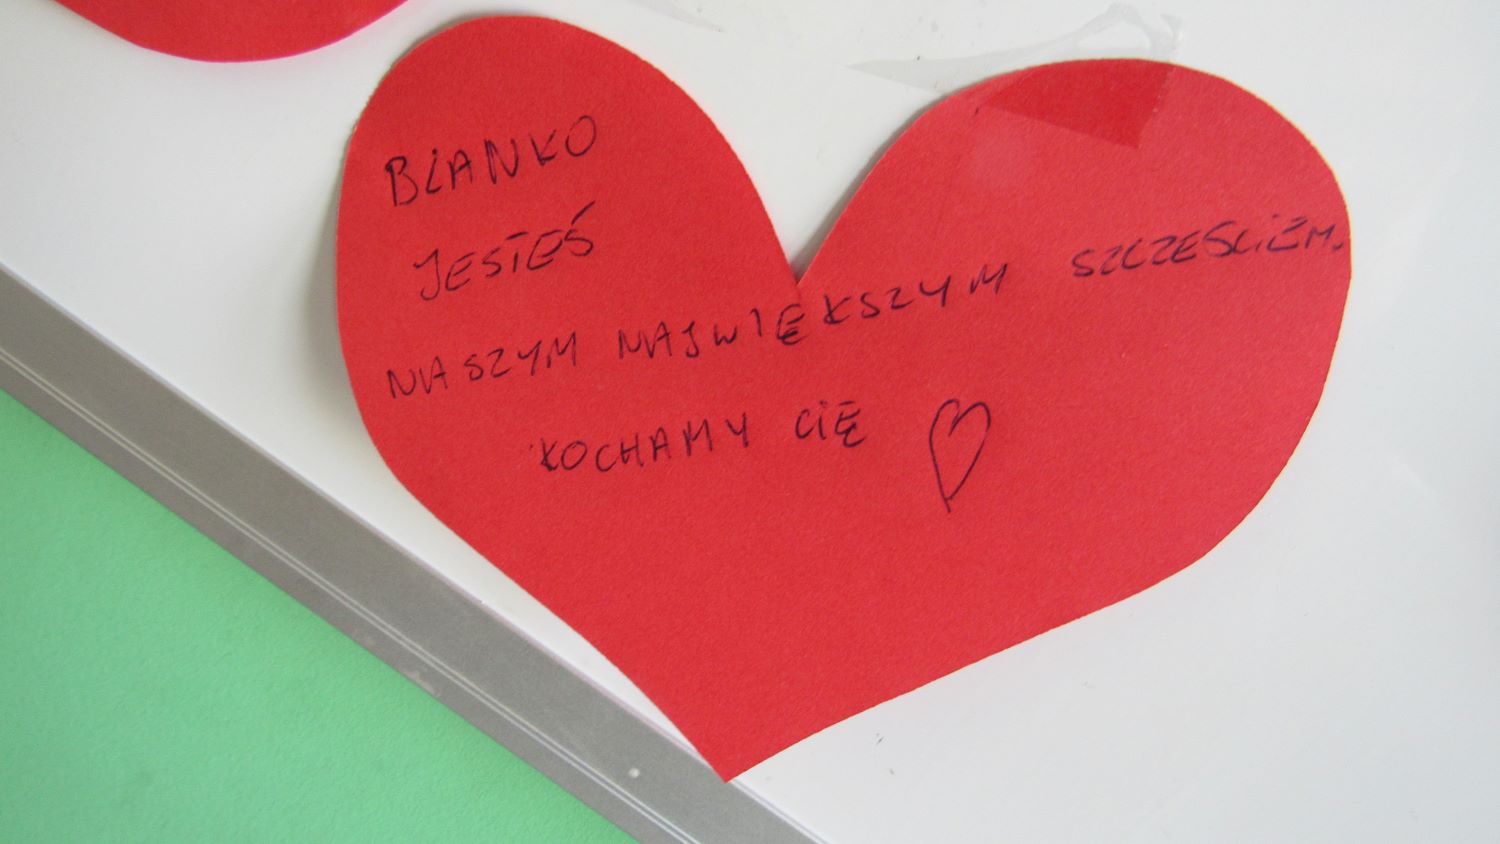 BLANKO
JESTEŚ
NASZYM NAJWIĘKSZYM SZCZEŚCIEM.
KOCHAMY CIĘ ♡